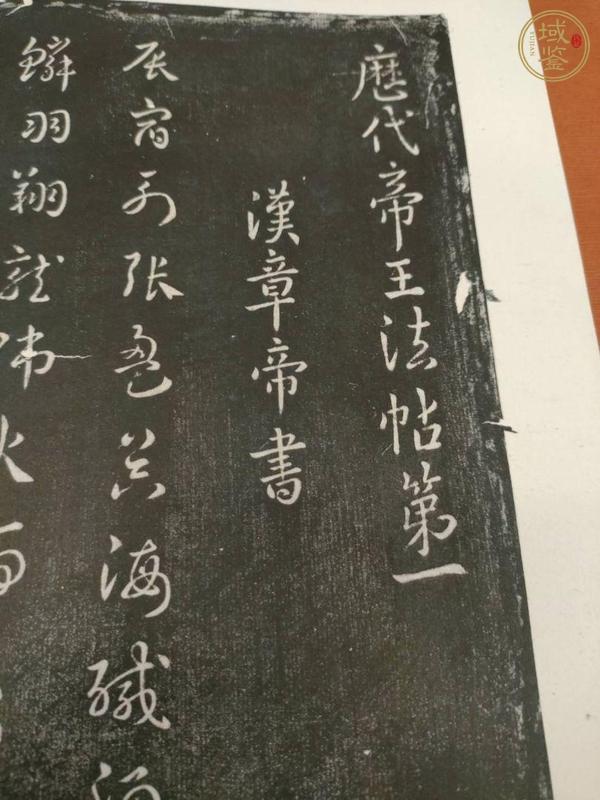 歷代帝王法帖第一
漢章帝書
辰宿列張盈昃海鹹河
鱗羽翔龍師火帝
域鉴
YUJIAN